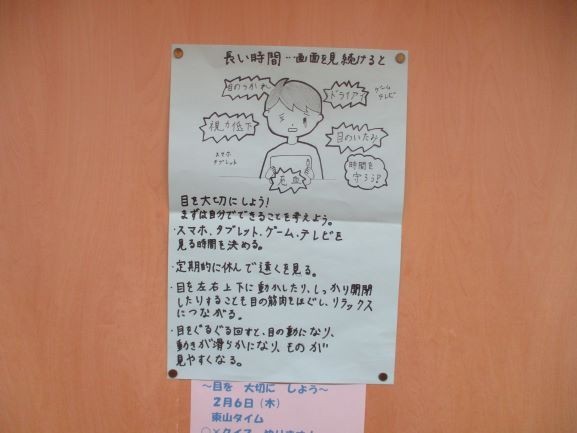 長い時間…画面を見続けると
目のつかれ
ドライアイ
ゲーム
テレビ
視力低下
目のいたみ
スマホ
タブレット
充血
時間を
守ろう!!
目を大切にしよう!
まずは自分でできることを考えよう。
・スマホ、タブレット、ゲーム、テレビを
見る時間を決める。
・定期的に休んで遠くを見る。
・目を左右上下に動かしたり、しっかり開閉
したりすることも目の筋肉をほぐし、リラックス
につながる。
・目をぐるぐる回すと、目の動になり、
動きが滑らかになり、ものが
見やすくなる。
～目を 大切に しよう～
2月6日(木)
東山タイム
○×クイズ やります!